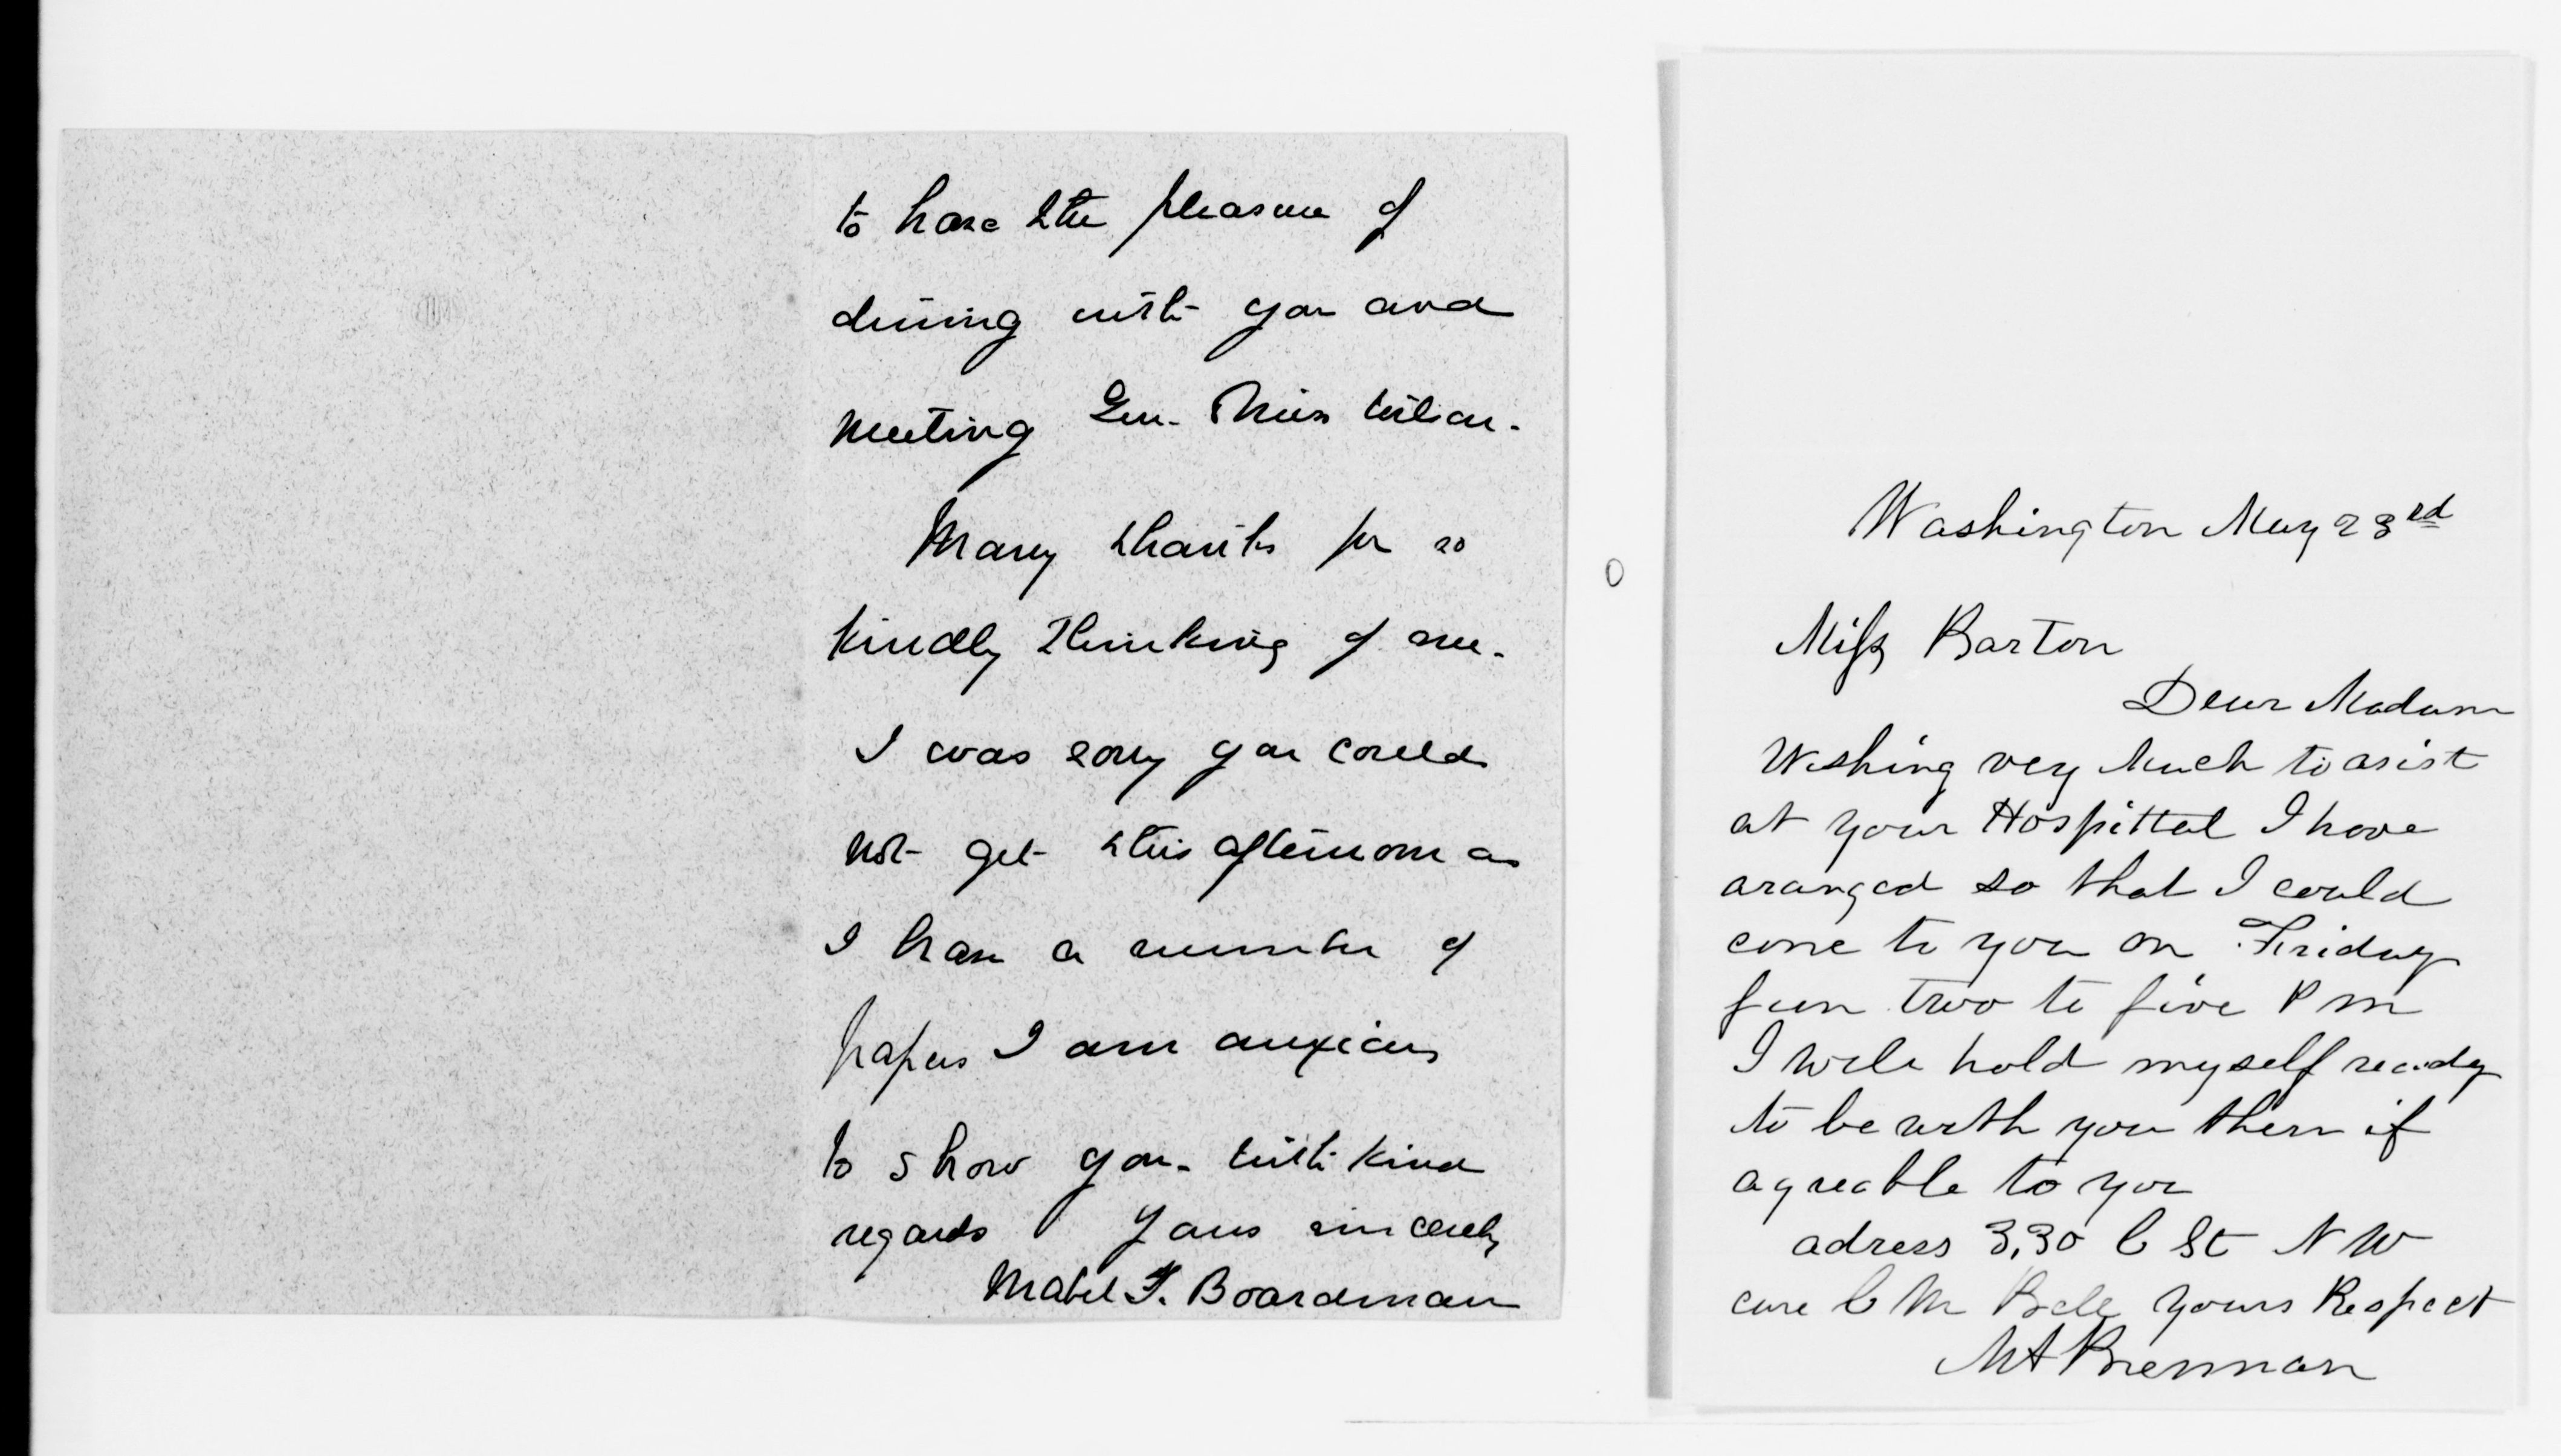 to have the pleasure of
dining with you and
meeting Gen. Miss Wilson.
Many thanks for so
kindly thinking of me.
I was sorry you could
not get this afternoon as
I have a number of
papers I am anxious
to show you. With kind
regards Yours sincerely
Mabel T. Boardman
Washington May 23rd
Miss Barton
Dear Madam
Wishing very Much to asist
at your Hospittal I have
aranged so that I could
come to you on Friday
from two to five P m
I will hold myself ready
to be with you then if
agreable to you
adress 3,30 C St N W
care C M Bell Yours Respect
M A Brennan